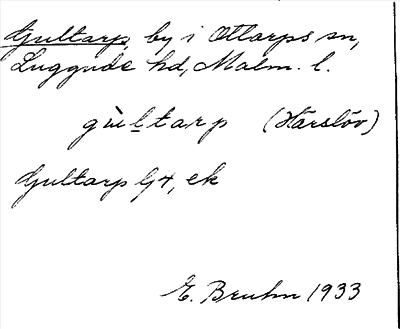 Gultarp, by i Ottarps sn,
Luggude hd, Malm. l.
gùltarp (Härslöv)
Gultarp G4, ek
E. Bruhn 1933